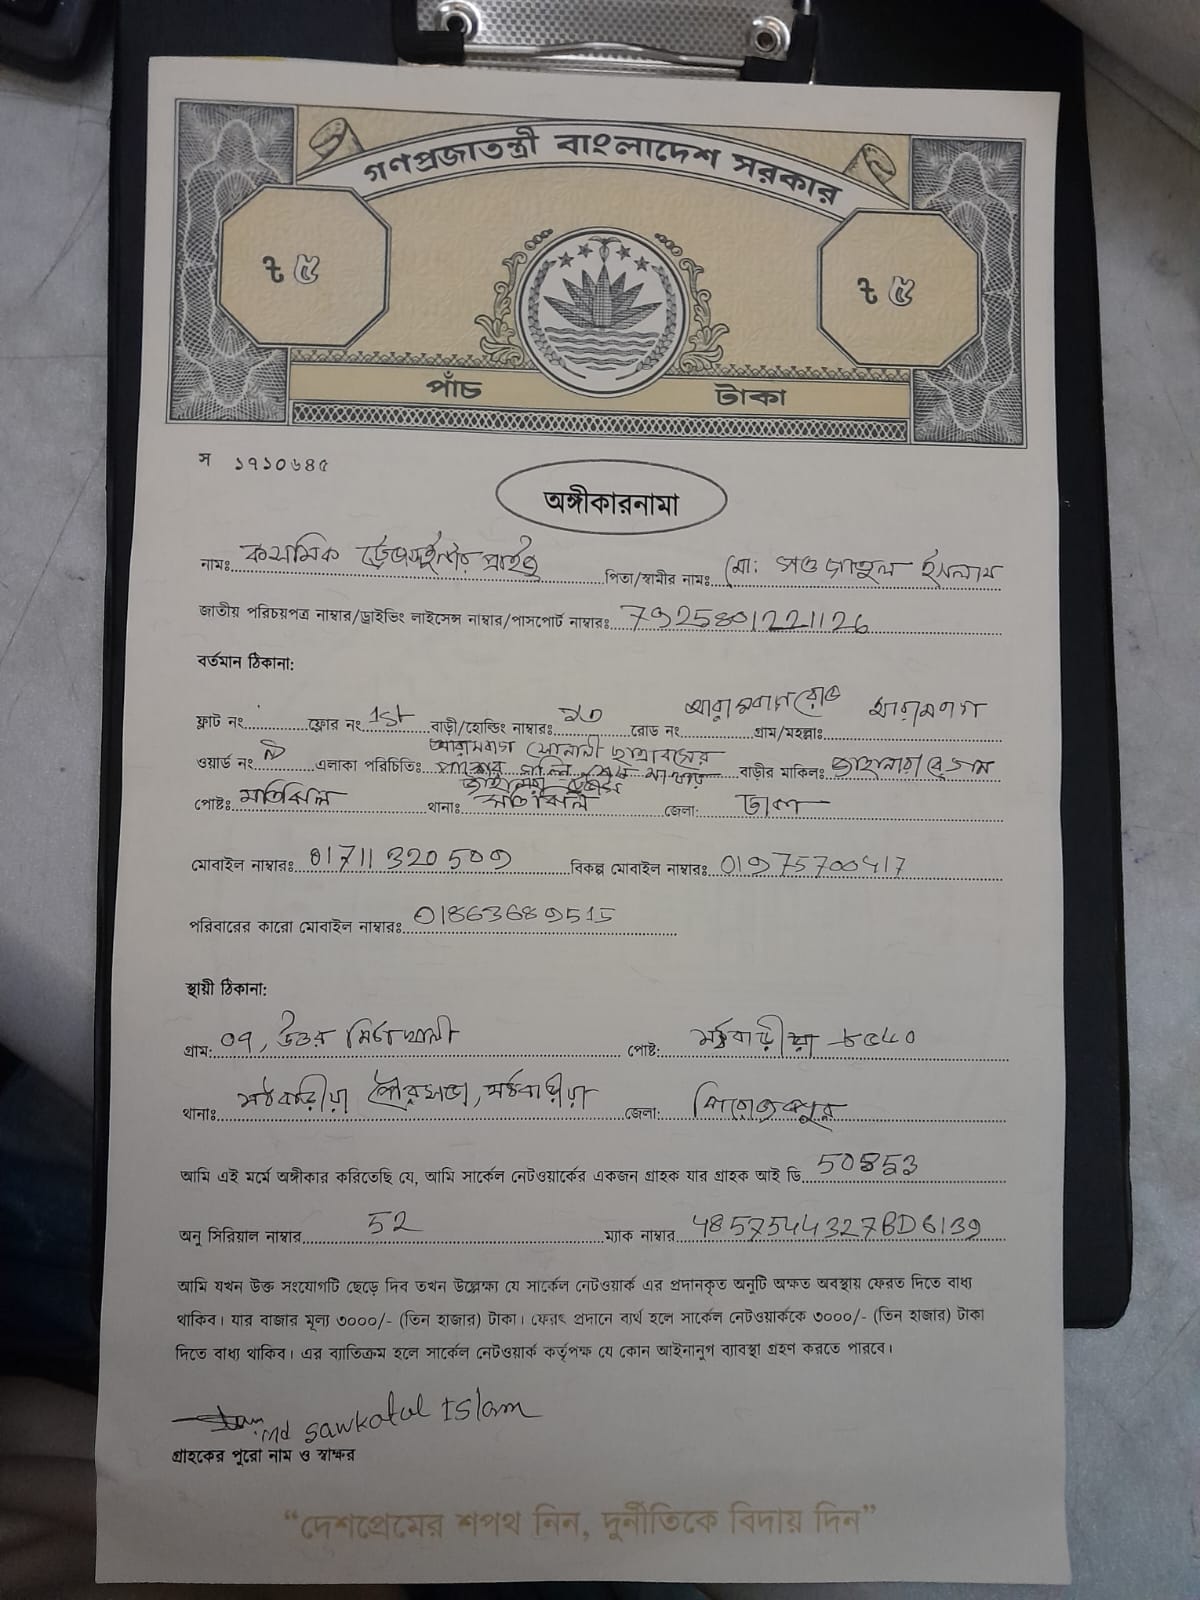 গণপ্রজাতন্ত্রী বাংলাদেশ সরকার
৳ ৫ ৳ ৫
পাঁচ টাকা
স ১৭১০৬৪৫
অঙ্গীকারনামা
নামঃ কসমিক প্রাইভ পিতা/স্বামীর নামঃ মো: সওকাতুল ইসলাম
জাতীয় পরিচয়পত্র নাম্বার/ড্রাইভিং লাইসেন্স নাম্বার/পাসপোর্ট নাম্বারঃ 7925801221126
বর্তমান ঠিকানা:
ফ্লাট নং ফ্লোর নং 1st বাড়ী/হোল্ডিং নাম্বারঃ ১৩ রোড নং আরামবাগ রোড গ্রাম/মহল্লাঃ আরামবাগ
ওয়ার্ড নং এলাকা পরিচিতিঃ আরামবাগ সোনালী ছাত্রাবাসের পাশের গলির শেষ মাথায় বাড়ীর মালিকঃ জাহানারা বেগম
পোষ্টঃ মতিঝিল থানাঃ মতিঝিল জেলা: ঢাকা
মোবাইল নাম্বারঃ 01711320509 বিকল্প মোবাইল নাম্বারঃ 01975700417
পরিবারের কারো মোবাইল নাম্বারঃ 01863689515
স্থায়ী ঠিকানা:
গ্রাম: ০৭, উত্তর মিঠাখালী পোষ্ট: মঠবাড়ীয়া ৮৫৬০
থানাঃ মঠবাড়ীয়া পৌরসভা, মঠবাড়ীয়া জেলা: পিরোজপুর
আমি এই মর্মে অঙ্গীকার করিতেছি যে, আমি সার্কেল নেটওয়ার্কের একজন গ্রাহক যার গ্রাহক আই ডি 50853
অনু সিরিয়াল নাম্বার 52 ম্যাক নাম্বার 4857544327BD6139
আমি যখন উক্ত সংযোগটি ছেড়ে দিব তখন উল্লেক্ষ্য যে সার্কেল নেটওয়ার্ক এর প্রদানকৃত অনুটি অক্ষত অবস্থায় ফেরত দিতে বাধ্য
থাকিব। যার বাজার মূল্য ৩০০০/- (তিন হাজার) টাকা। ফেরৎ প্রদানে ব্যর্থ হলে সার্কেল নেটওয়ার্ককে ৩০০০/- (তিন হাজার) টাকা
দিতে বাধ্য থাকিব। এর ব্যাতিক্রম হলে সার্কেল নেটওয়ার্ক কর্তৃপক্ষ যে কোন আইনানুগ ব্যাবস্থা গ্রহণ করতে পারবে।
md Sawkatul Islam
গ্রাহকের পুরো নাম ও স্বাক্ষর
“দেশপ্রেমের শপথ নিন, দুর্নীতিকে বিদায় দিন”